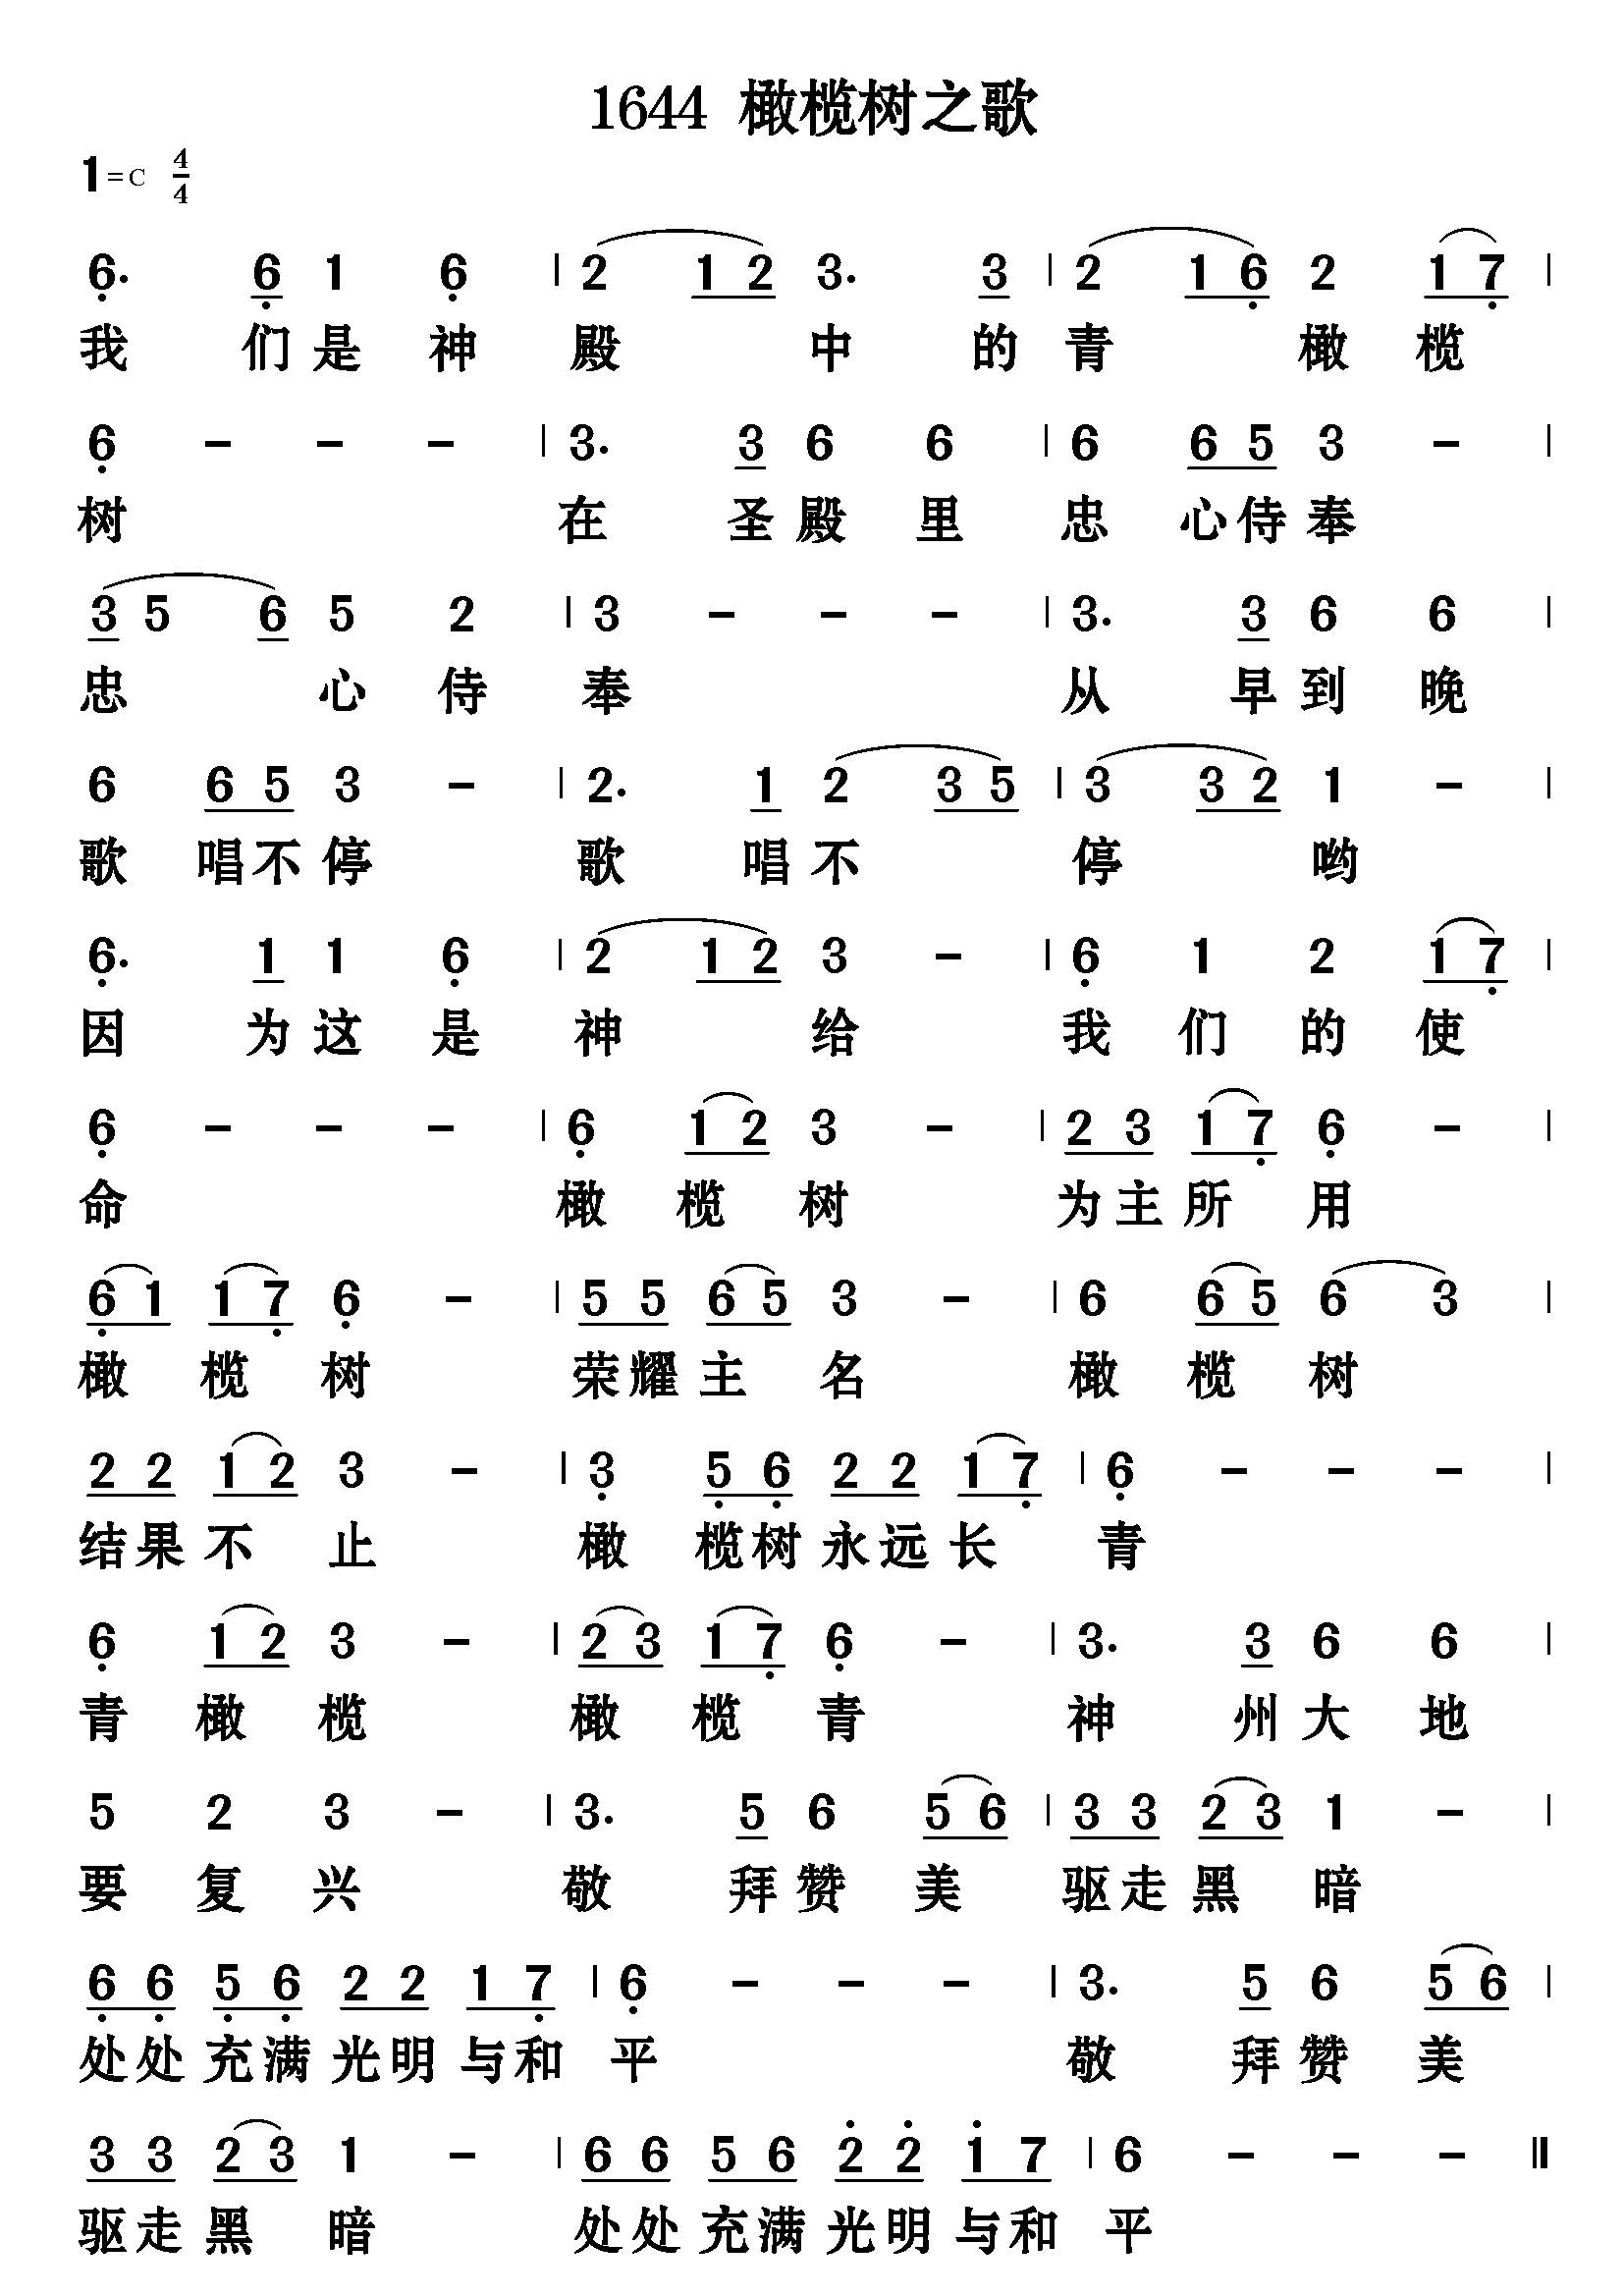 1644 橄榄树之歌
1=C 4/4
6̣. 6̣ 1 6̣ | 2 1 2 3. 3 | 2 1 6̣ 2 1 7̣ |
我 们 是 神 殿 中 的 青 橄 榄
6̣ - - - | 3. 3 6 6 | 6 6 5 3 - |
树 在 圣 殿 里 忠 心 侍 奉
3 5 6 5 2 | 3 - - - | 3. 3 6 6 |
忠 心 侍 奉 从 早 到 晚
6 6 5 3 - | 2. 1 2 3 5 | 3 3 2 1 - |
歌 唱 不 停 歌 唱 不 停 哟
6̣. 1 1 6̣ | 2 1 2 3 - | 6̣ 1 2 1 7̣ |
因 为 这 是 神 给 我 们 的 使
6̣ - - - | 6̣ 1 2 3 - | 2 3 1 7̣ 6̣ - |
命 橄 榄 树 为 主 所 用
6̣ 1 1 7̣ 6̣ - | 5 5 6 5 3 - | 6 6 5 6 3 |
橄 榄 树 荣 耀 主 名 橄 榄 树
2 2 1 2 3 - | 3̣ 5̣ 6̣ 2 2 1 7̣ | 6̣ - - - |
结 果 不 止 橄 榄 树 永 远 长 青
6̣ 1 2 3 - | 2 3 1 7̣ 6̣ - | 3. 3 6 6 |
青 橄 榄 橄 榄 青 神 州 大 地
5 2 3 - | 3. 5 6 5 6 | 3 3 2 3 1 - |
要 复 兴 敬 拜 赞 美 驱 走 黑 暗
6̣ 6̣ 5̣ 6̣ 2 2 1 7̣ | 6̣ - - - | 3. 5 6 5 6 |
处 处 充 满 光 明 与 和 平 敬 拜 赞 美
3 3 2 3 1 - | 6 6 5 6 2̇ 2̇ 1̇ 7 | 6 - - - ‖
驱 走 黑 暗 处 处 充 满 光 明 与 和 平